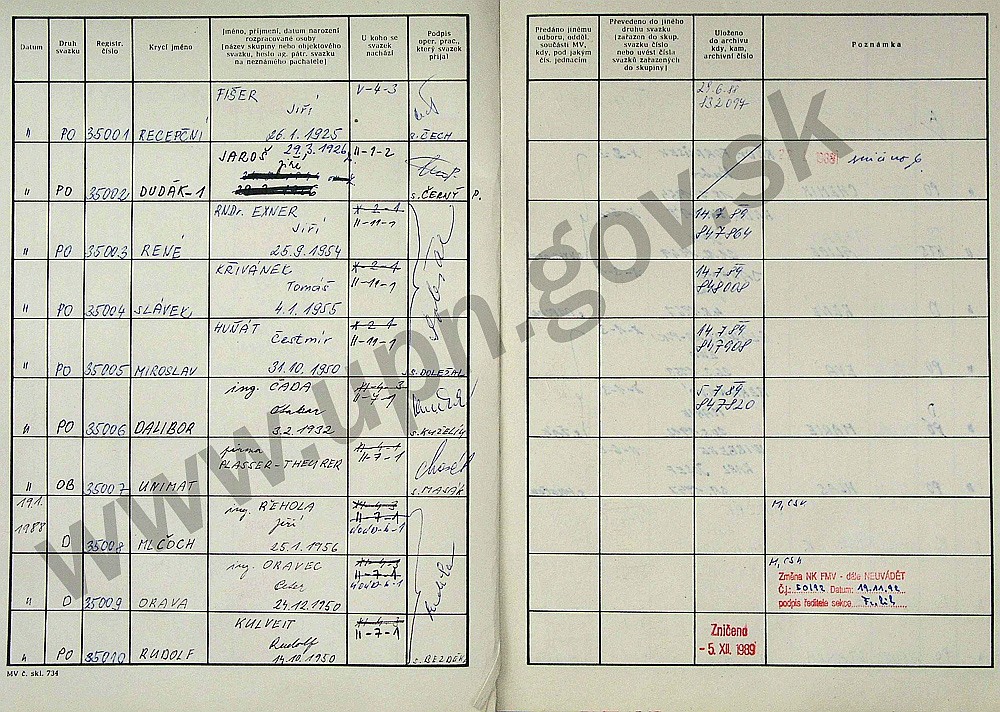 Datum
Druh
svazku
Registr.
číslo
Krycí jméno
Jméno, příjmení, datum narození
rozpracované osoby
[název skupiny nebo objektového
svazku, heslo ag. pátr. svazku
na neznámého pachatele]
U koho se
svazek
nachází
Podpis
oper. prac.,
který svazek
přijal
Předáno jinému
odboru, odděl.
součásti MV,
kdy, pod jakým
čís. jednacím
Převedeno do jiného
druhu svazku
[zařazen do skup.
svazku číslo
nebo uvést čísla
svazků zařazených
do skupiny]
Uloženo
do archivu
kdy, kam,
archivní číslo
Poznámka
" PO 35001 RECEPČNÍ
FIŠER
Jiří
26.1.1925
V-4-3
s. ČECH
29.6.88
132094
" PO 35002 DUDÁK-1
JAROŠ 29.3.1926
Jiří
II-1-2
s. ČERNÝ P.
" PO 35003 RENÉ
RNDr. EXNER
Jiří
25.9.1954
X-2-1
II-11-1
14.7.89
847864
" PO 35004 SLÁVEK
KŘIVÁNEK
Tomáš
4.1.1955
X-2-1
II-11-1
14.7.89
848008
" PO 35005 MIROSLAV
HUŇÁT
Čestmír
31.10.1950
X-2-1
II-11-1
s. DOLEŽAL
14.7.89
847908
" PO 35006 DALIBOR
ing. ČADA
Otakar
3.2.1932
XI-4-3
II-7-1
s. KUŽELÍK
5.7.89
847820
" OB 35007 UNIMAT
firma
PLASSER-THEURER
II-7-1
s. MASÁK
19.1.
1988
D 35008 MLČOCH
ing. ŘEHOLA
Jiří
25.1.1956
XI-4-3
II-7-1
M, CSK
" D 35009 ORAVA
ing. ORAVEC
Peter
24.12.1950
XI-4-3
II-7-1
M, CSK
Změna NK FMV - dále NEUVÁDĚT
Č.j.: 50/92 Datum: 19.11.92
podpis ředitele sekce
" PO 35010 RUDOLF
KULVEIT
Rudolf
14.10.1950
XI-4-3
II-7-1
s. BEZDĚK
Zničeno
-5. XII. 1989
MV č. skl. 734
www.upn.gov.sk